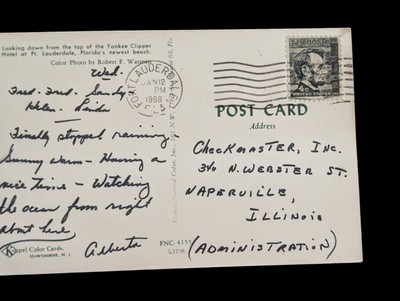 Looking down from the top of the Yankee Clipper
Hotel at Ft. Lauderdale, Florida's newest beach.
Color Photo by Robert F. Warner
Wed.
Fred - Fred - Sandy
Helen - Linda
Finally stopped raining
Sunny warm - Having a
nice time - Watching
the ocean from right
about here
Alberta
Koppel Color Cards,
HAWTHORNE, N. J.
FORT LAUDERDALE
JAN 12
PM
1966
FLA
4c
UNITED STATES
POST CARD
Address
CHECKMASTER, INC.
340 N. WEBSTER ST.
NAPERVILLE,
ILLINOIS
(ADMINISTRATION)
FNC-4155